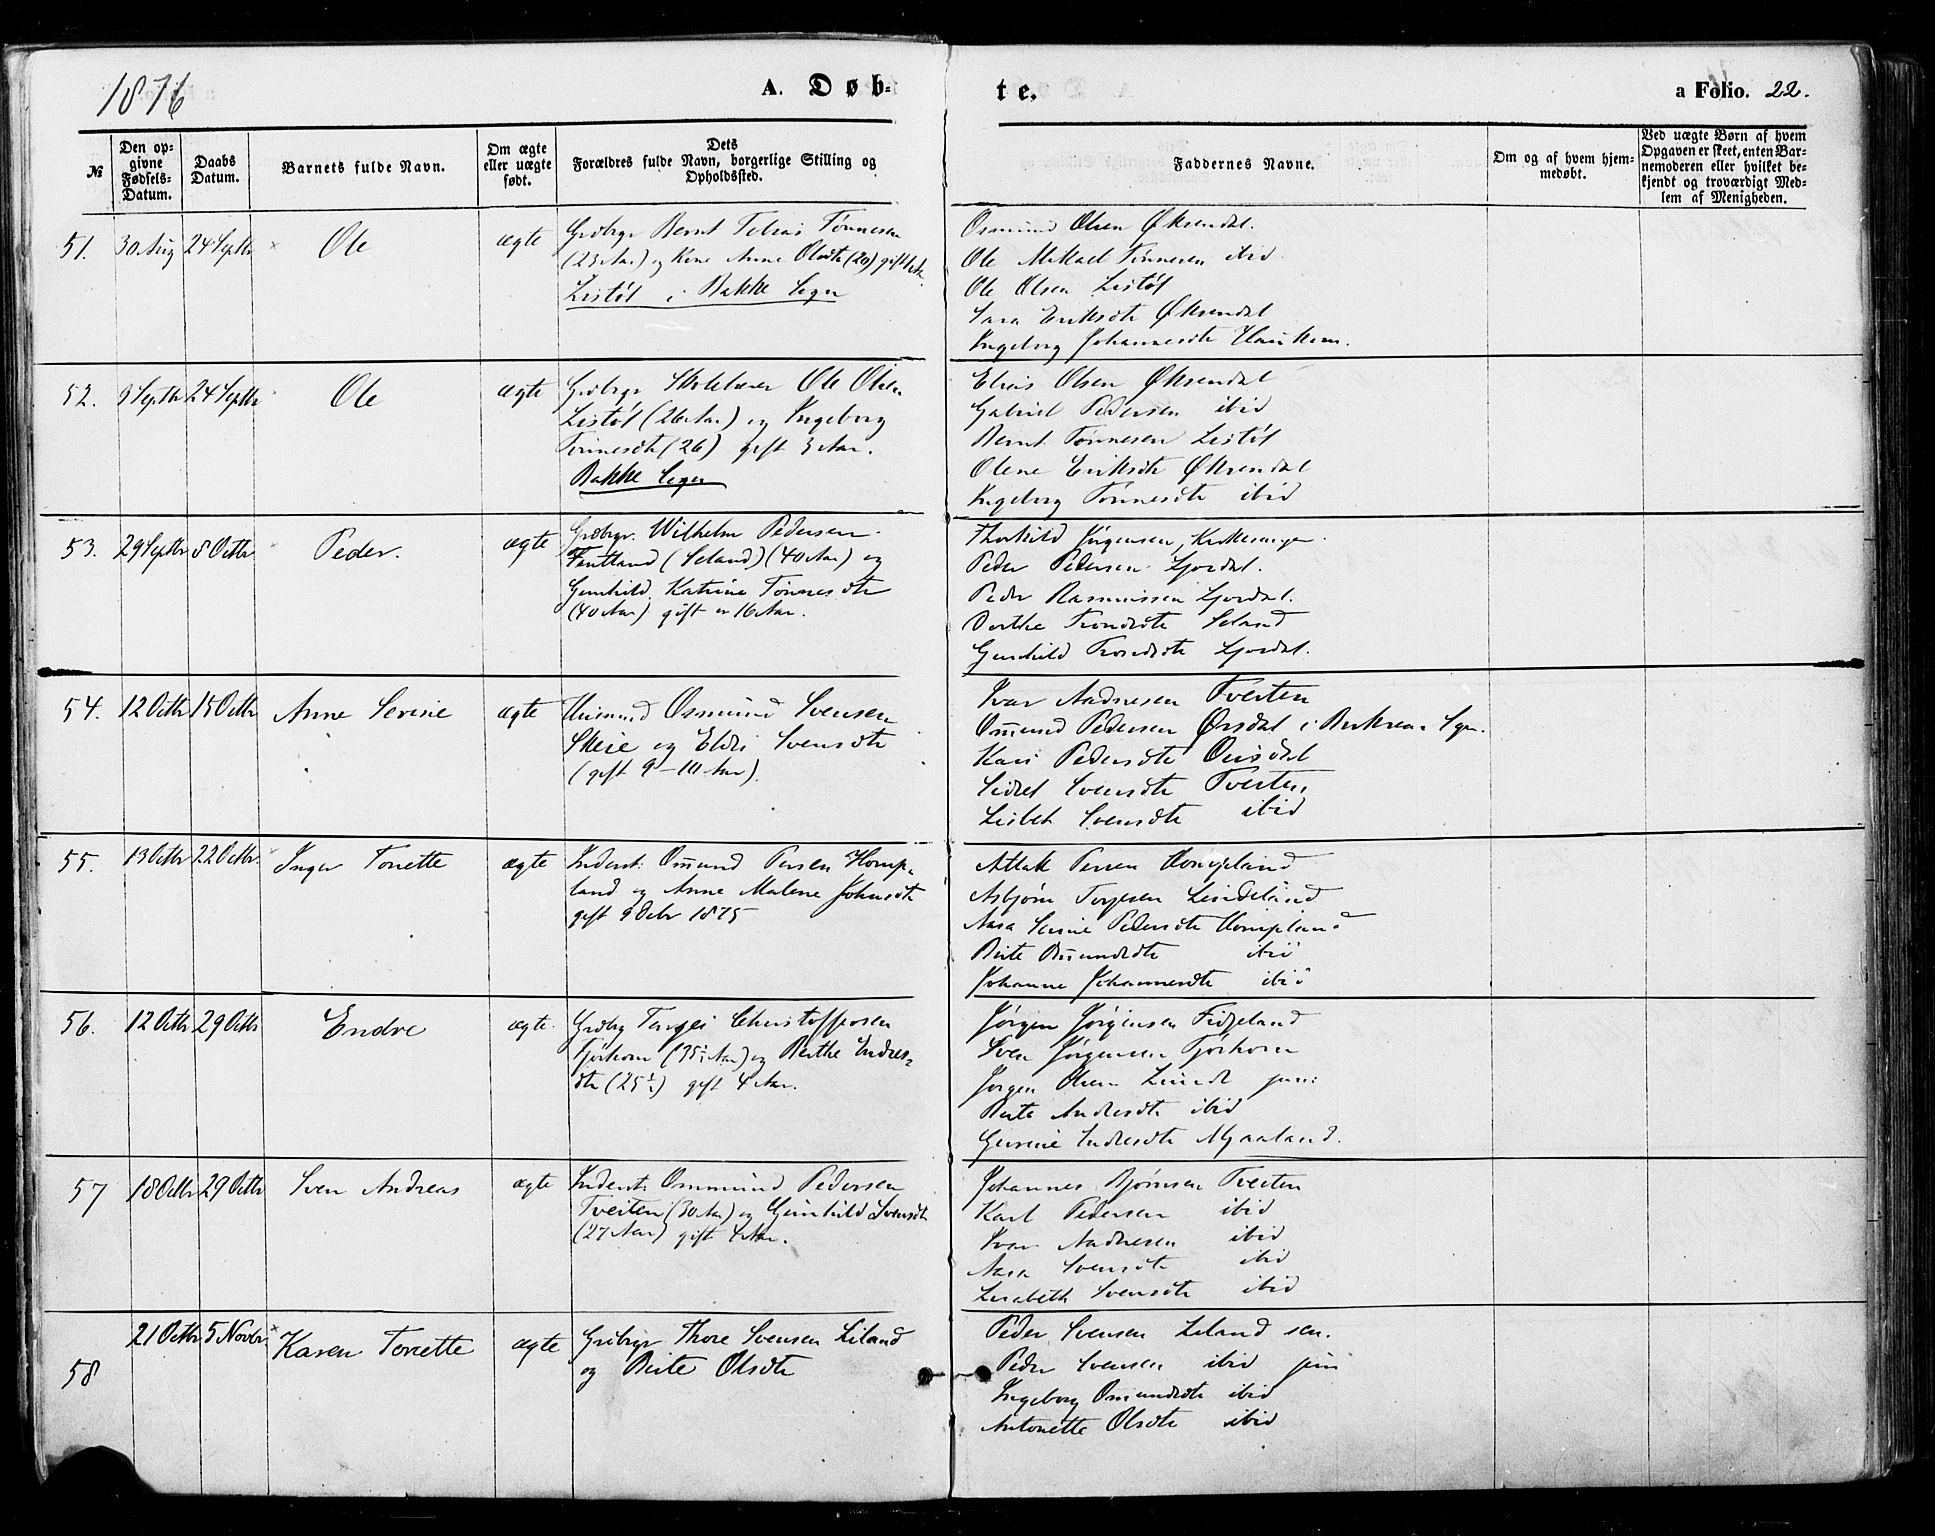 1876
A. Døb-
te.
a Folio. 22.
№
Den op-
givne
Fødsels-
Datum.
Daabs
Datum.
Barnets fulde Navn.
Om ægte
eller uægte
født.
Dets
Forældres fulde Navn, borgerlige Stilling og
Opholdssted.
Faddernes Navne.
Om og af hvem hjem-
medøbt.
Ved uægte Børn af hvem
Opgaven er skeet, enten Bar-
nemoderen eller hvilket be-
kjendt og troværdigt Med-
lem af Menigheden.
51. 30 Aug 24 Septbr Ole ægte
Grdbgr Bernt Tobias Tønnesen
(23 Aar) og Kone Anne Olsdtr (20) gift
Listøl i Bakke Sogn
Osmund Olsen Øksendal.
Ole Mikael Tønnesen ibid
Ole Olsen Listøl
Sara Eriksdtr Øksendal
Ingeborg Johannesdtr
52. 9 Septbr 24 Septbr Ole ægte
Grdbgr Skolelærer Ole Olsen
Listøl (26 Aar) og Ingeborg
Tønnesdtr (26) gift 3 Aar.
Bakke Sogn
Elias Olsen Øksendal
Gabriel Pedersen ibid
Bernt Tønnesen Listøl
Olene Eriksdtr Øksendal
Ingeborg Tønnesdtr ibid
53. 29 Septbr 8 Octbr Peder. ægte
Grdbgr. Wilhelm Pedersen
Fintland (Seland) (40 Aar) og
Gunhild Katrine Tønnesdtr
(40 Aar) gift er 16 Aar.
Thorkild Jørgensen, Kirkesanger
Peder Pedersen Gjordal.
Peder Rasmussen Gjordal.
Dorthe Trondsdtr Seland
Gunhild Trondsdtr Gjordal.
54. 12 Octbr 15 Octbr Anne Serine ægte
Huusmd Osmund Svensen
Skeie og Eldri Svensdtr
(gift 9-10 Aar).
Ivar Aadnesen Tveiten
Osmund Pedersen Ørsdal i Birkrem Sgn.
Kari Pedersdtr Ørsdal
Sidsel Svensdtr Tveiten
Lisbet Svensdtr ibid
55. 13 Octbr 22 Octbr. Inger Tonette ægte
Inderst. Omund Persen Homp-
land og Anne Malene Johnsdtr
gift 9 Debr 1875
Atlak Persen Hompland
Asbjørn Torgesen Lindeland
Aasa Serine Pedersdtr Hompland
Berte Omundsdtr ibid
Johanne Johannesdtr ibid
56. 12 Octbr 29 Octbr Endre ægte.
Grdbg Torgei Christoffersen
Tjørhom (35½ Aar) og Berthe Endres-
dtr (25½) gift 4 Aar.
Jørgen Jørgensen Fidjeland
Sven Jørgensen Tjørhom
Jørgen Olsen jun:
Berte Andersdtr ibid
Gurine Endresdtr Mjaaland.
57 18 Octbr 29 Octbr Sven Andreas ægte
Inderst. Ommund Pedersen
Tveiten (30 Aar) og Gunhild Svensdtr
(27 Aar) gift 4 Aar.
Johannes Bjørnsen Tveiten
Karl Pedersen ibid
Ivar Aadnesen ibid
Aasa Svensdtr ibid
Lisabeth Svensdtr ibid
58 21 Octbr 5 Novbr. Karen Tonette ægte
Grdbgr Thore Svensen Liland
og Berte Olsdtr
Peder Svensen Liland sen.
Peder Svensen ibid jun
Ingeborg Omundsdtr ibid
Antonette Olsdtr ibid